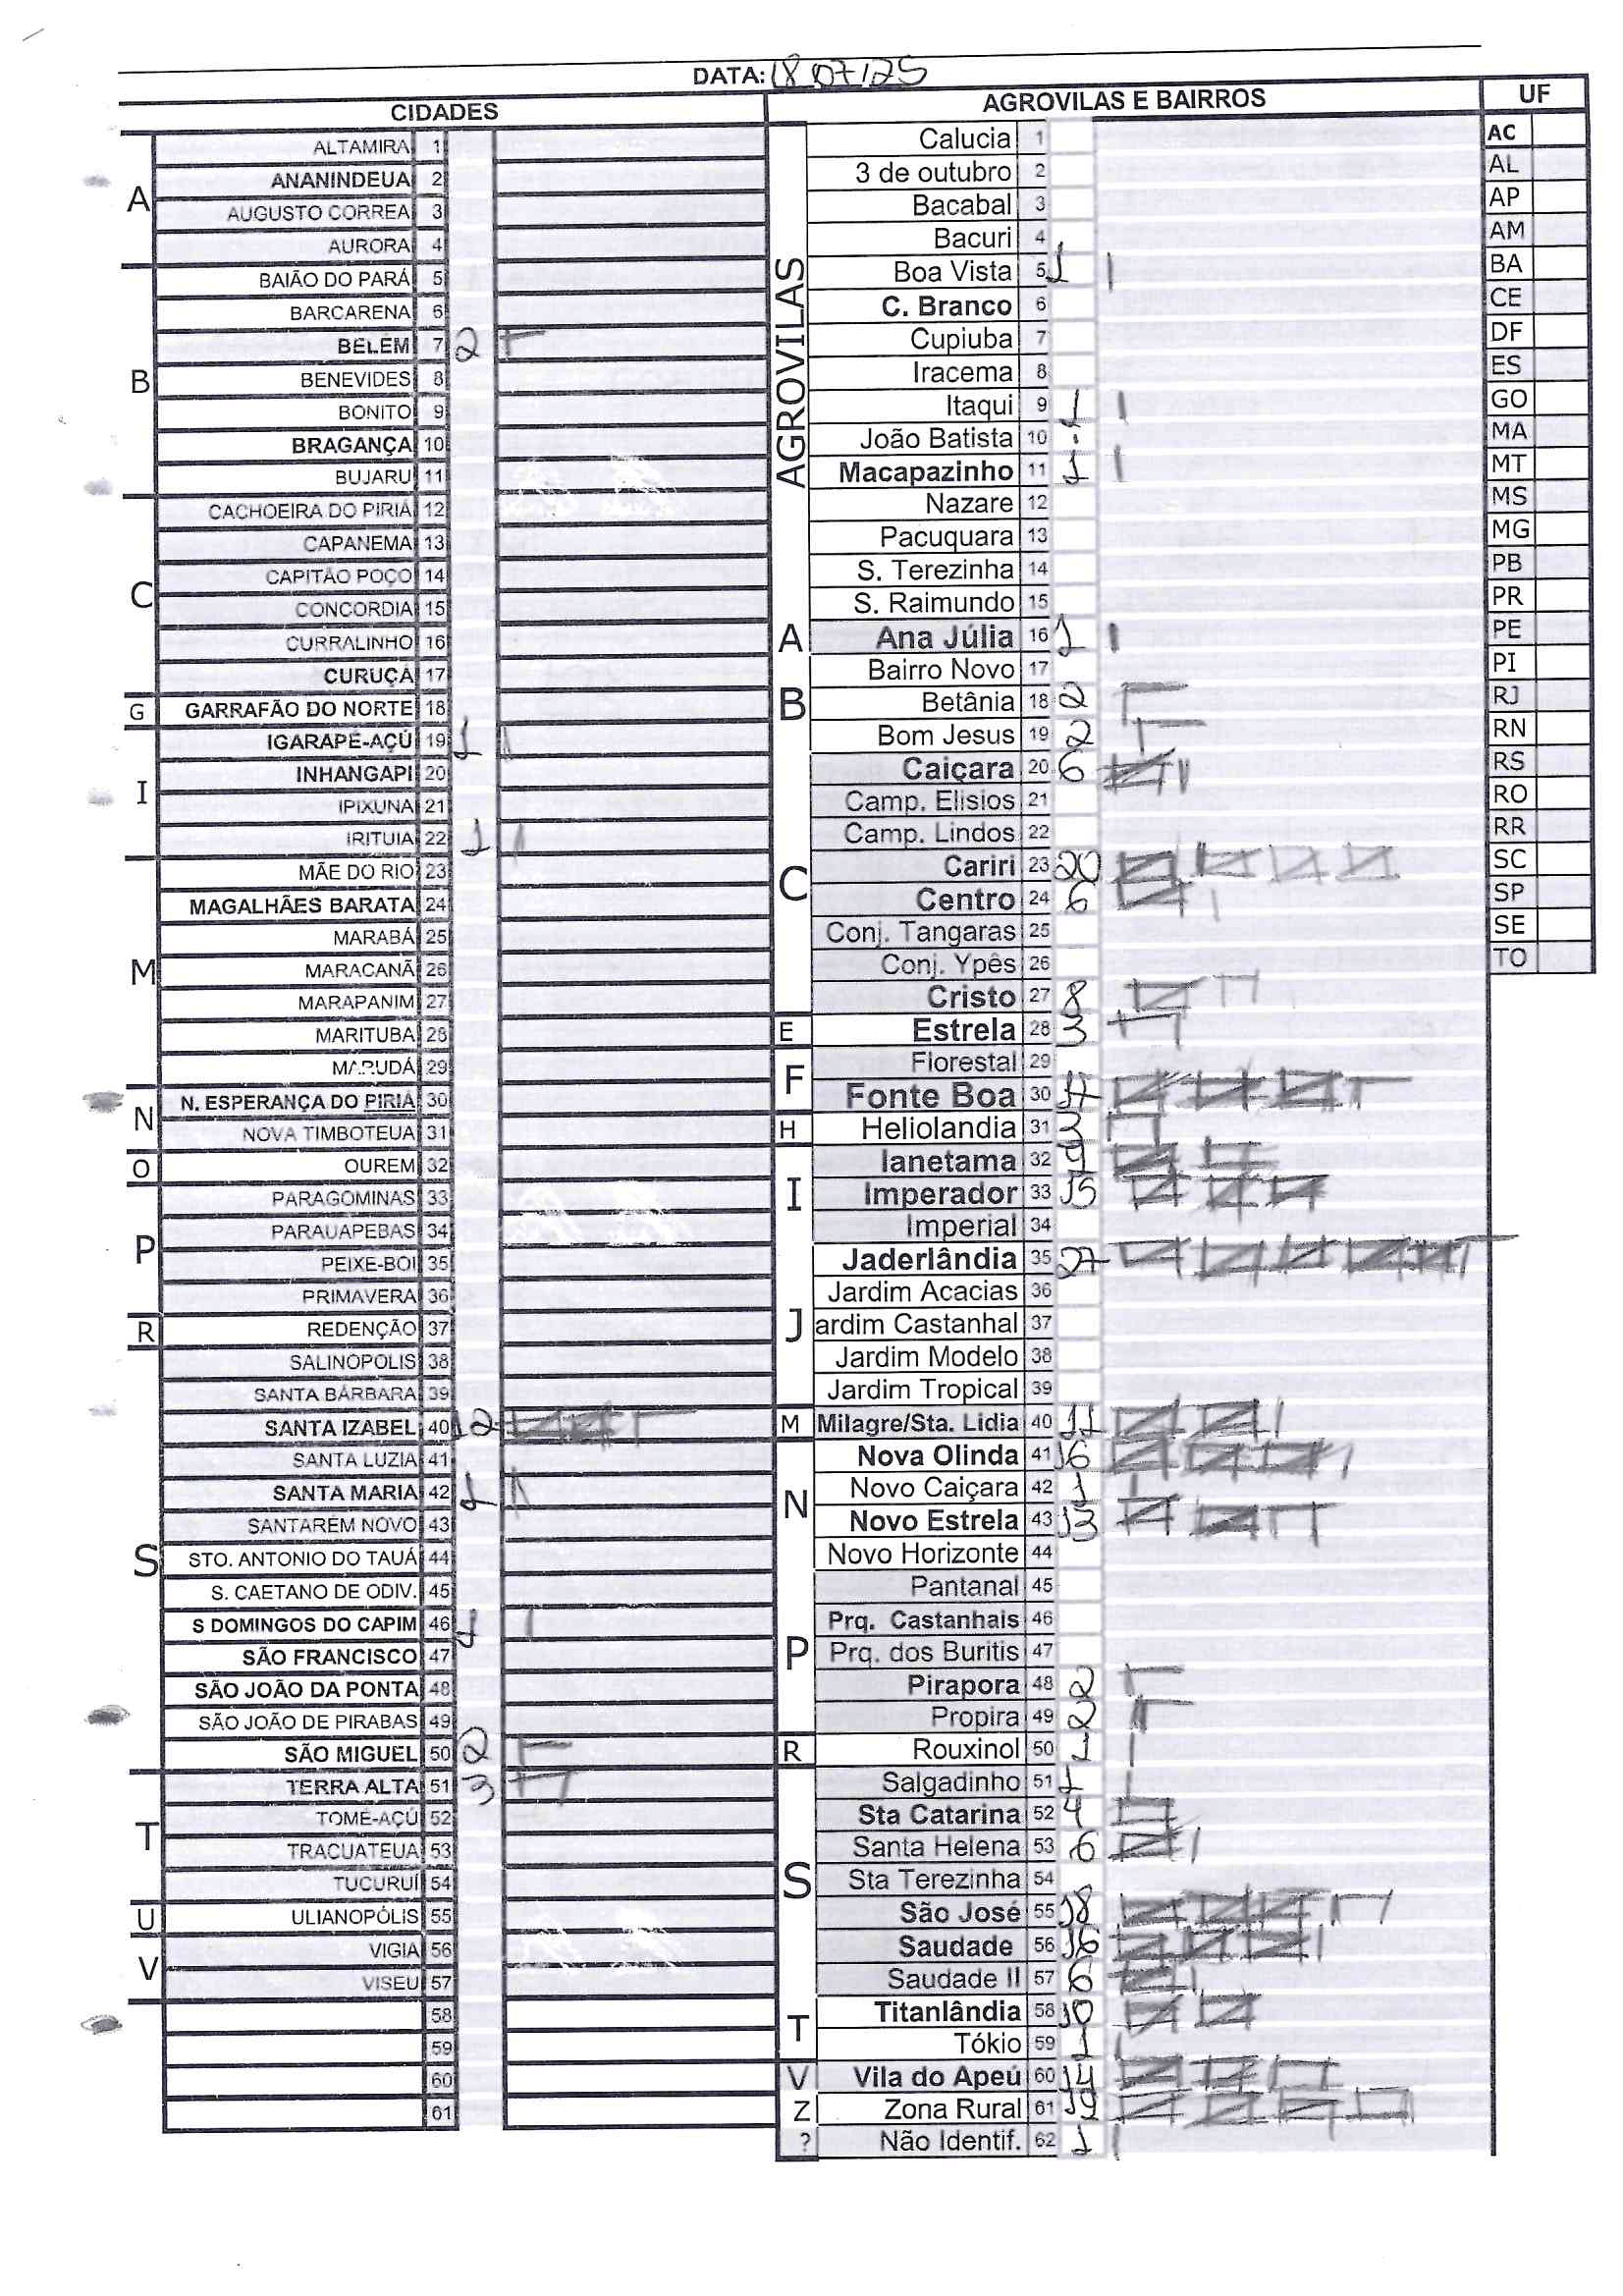 DATA: 18 07/25
CIDADES
A
ALTAMIRA 1
ANANINDEUA 2
AUGUSTO CORREA 3
AURORA 4
B
BAIÃO DO PARÁ 5
BARCARENA 6
BELÉM 7 2
BENEVIDES 8
BONITO 9
BRAGANÇA 10
BUJARU 11
C
CACHOEIRA DO PIRIÁ 12
CAPANEMA 13
CAPITÃO POÇO 14
CONCORDIA 15
CURRALINHO 16
CURUÇÁ 17
G
GARRAFÃO DO NORTE 18
I
IGARAPÉ-AÇÚ 19 1
INHANGAPI 20
IPIXUNA 21
IRITUIA 22 1
M
MÃE DO RIO 23
MAGALHÃES BARATA 24
MARABÁ 25
MARACANÃ 26
MARAPANIM 27
MARITUBA 28
MARUDÁ 29
N
N. ESPERANÇA DO PIRIÁ 30
NOVA TIMBOTEUA 31
O
OUREM 32
P
PARAGOMINAS 33
PARAUAPEBAS 34
PEIXE-BOI 35
PRIMAVERA 36
R
REDENÇÃO 37
S
SALINOPOLIS 38
SANTA BÁRBARA 39
SANTA IZABEL 40 12
SANTA LUZIA 41
SANTA MARIA 42
SANTARÉM NOVO 43
STO. ANTONIO DO TAUÁ 44
S. CAETANO DE ODIV. 45
S DOMINGOS DO CAPIM 46
SÃO FRANCISCO 47
SÃO JOÃO DA PONTA 48
SÃO JOÃO DE PIRABAS 49
SÃO MIGUEL 50 2
T
TERRA ALTA 51 3
TOMÉ-AÇÚ 52
TRACUATEUA 53
TUCURUÍ 54
U
ULIANOPÓLIS 55
V
VIGIA 56
VISEU 57
58
59
60
61
AGROVILAS E BAIRROS
AGROVILAS
Calucia 1
3 de outubro 2
Bacabal 3
Bacuri 4
Boa Vista 5 1
C. Branco 6
Cupiuba 7
Iracema 8
Itaqui 9 1
João Batista 10
Macapazinho 11 1
Nazare 12
Pacuquara 13
S. Terezinha 14
S. Raimundo 15
A
Ana Júlia 16 1
B
Bairro Novo 17
Betânia 18 2
Bom Jesus 19 2
C
Caiçara 20 6
Camp. Elisios 21
Camp. Lindos 22
Cariri 23 20
Centro 24 6
Conj. Tangaras 25
Conj. Ypês 26
Cristo 27 8
E
Estrela 28 3
F
Florestal 29
Fonte Boa 30 17
H
Heliolandia 31 3
I
Ianetama 32 9
Imperador 33 15
Imperial 34
J
Jaderlândia 35 27
Jardim Acacias 36
ardim Castanhal 37
Jardim Modelo 38
Jardim Tropical 39
M
Milagre/Sta. Lidia 40 11
N
Nova Olinda 41 16
Novo Caiçara 42 1
Novo Estrela 43 13
Novo Horizonte 44
P
Pantanal 45
Prq. Castanhais 46
Prq. dos Buritis 47
Pirapora 48 2
Propira 49 2
R
Rouxinol 50 1
S
Salgadinho 51 1
Sta Catarina 52 4
Santa Helena 53 6
Sta Terezinha 54
São José 55 18
Saudade 56 16
Saudade II 57 6
T
Titanlândia 58 10
Tókio 59 1
V
Vila do Apeú 60 14
Z
Zona Rural 61 19
?
Não Identif. 62 1
UF
AC
AL
AP
AM
BA
CE
DF
ES
GO
MA
MT
MS
MG
PB
PR
PE
PI
RJ
RN
RS
RO
RR
SC
SP
SE
TO